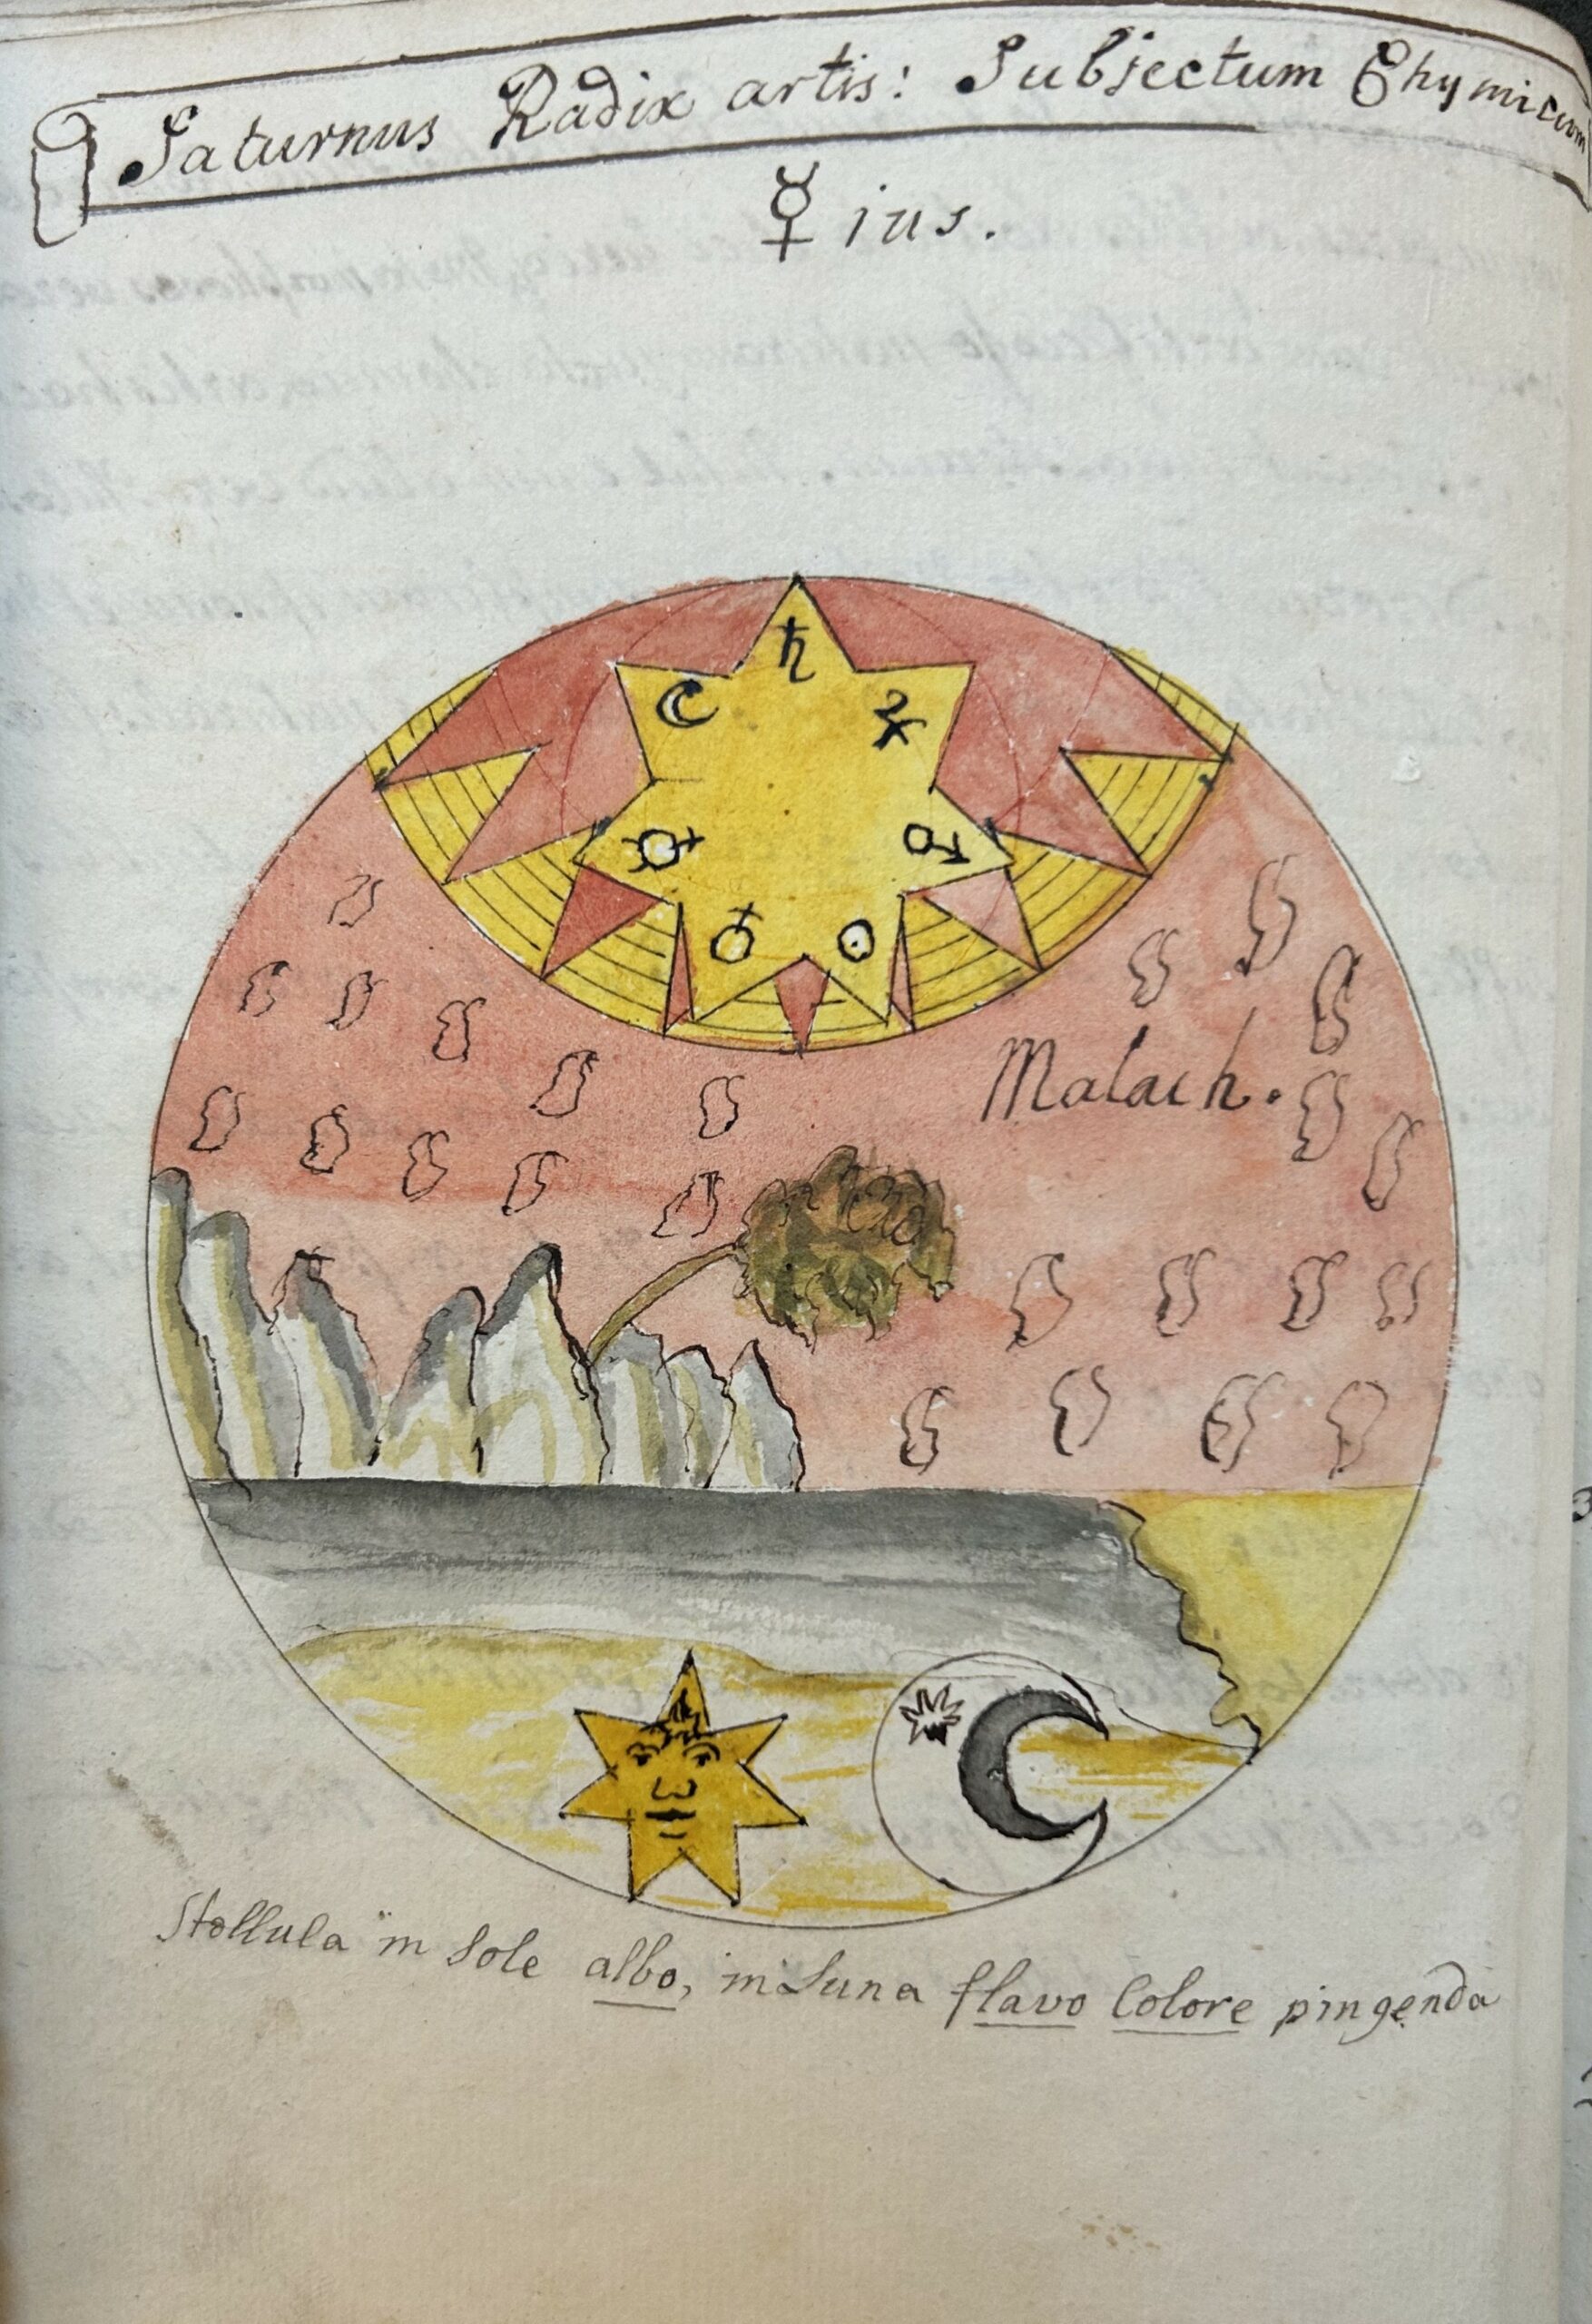 Saturnus Radix artis: Subjectum Chymicum
☿ ius.
♄
☾ ♃
☿ ♂
♀ ☉
Malach.
Stellula in Sole albo, in Luna flavo Colore pingenda